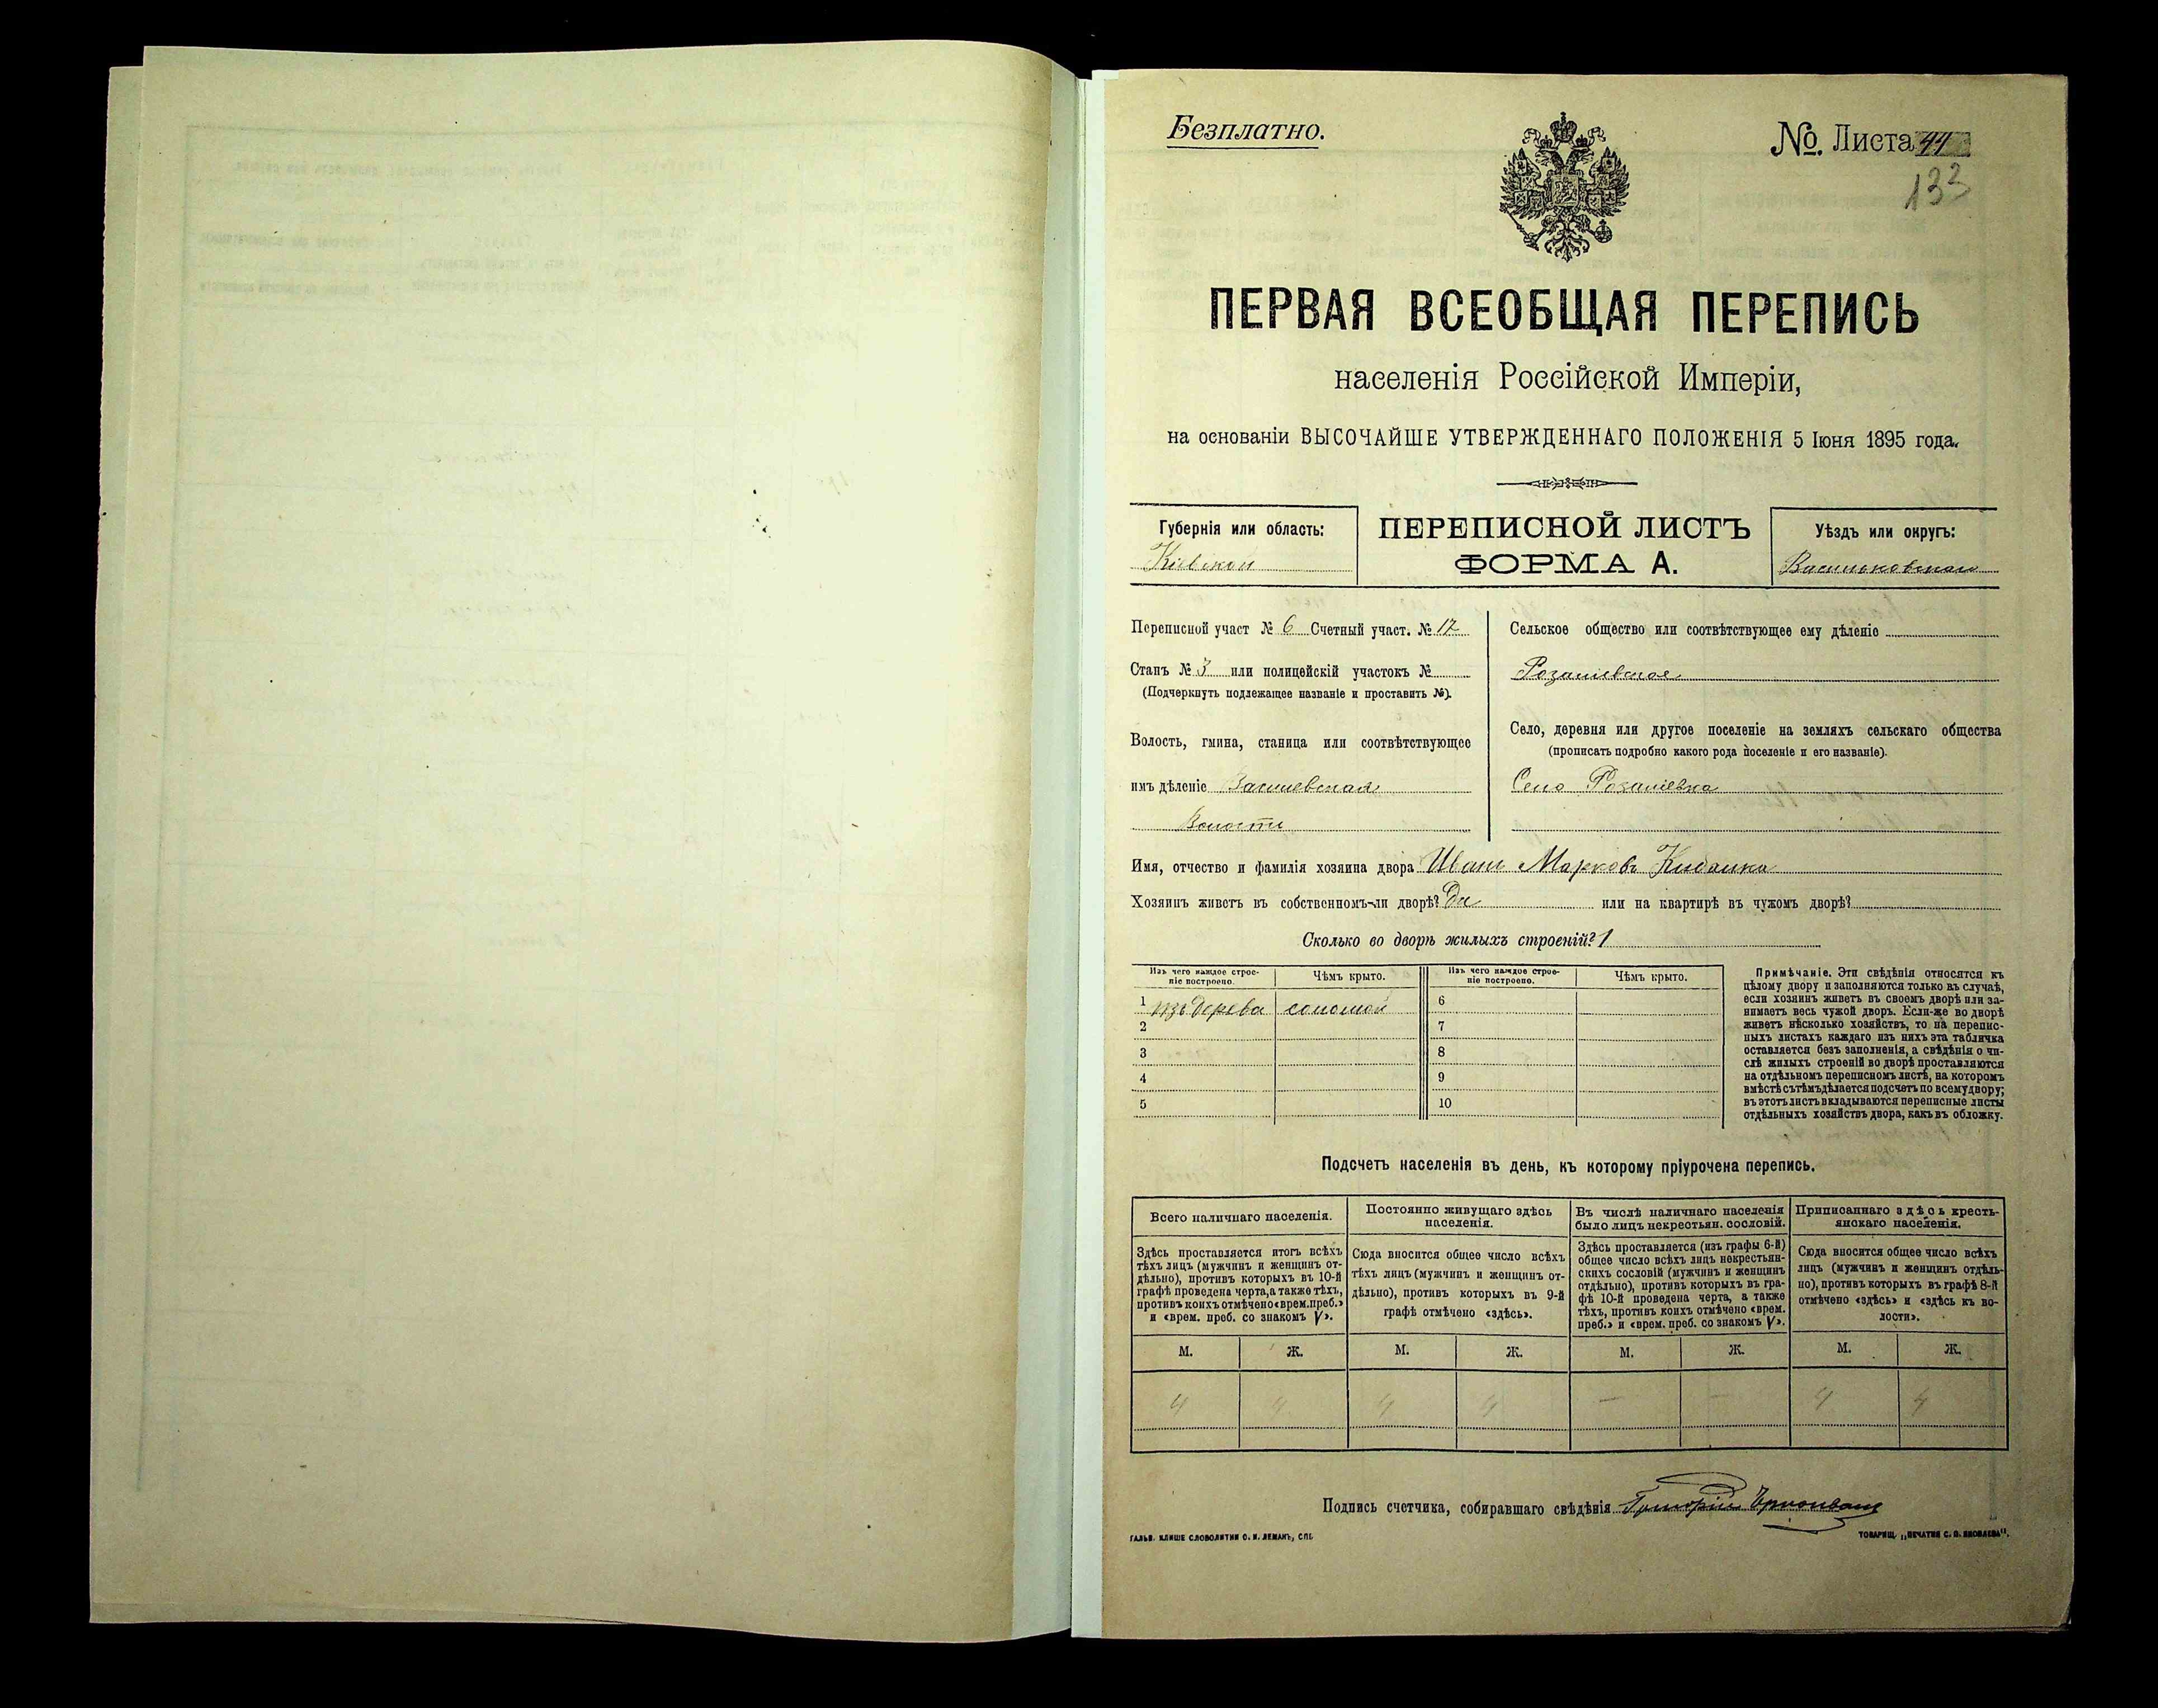 Безплатно.
№. Листа 44
133
ПЕРВАЯ ВСЕОБЩАЯ ПЕРЕПИСЬ
населенія Россійской Имперіи,
на основаніи ВЫСОЧАЙШЕ УТВЕРЖДЕННАГО ПОЛОЖЕНІЯ 5 Іюня 1895 года.
Губернія или область:
Кіевской
ПЕРЕПИСНОЙ ЛИСТЪ
ФОРМА А.
Уѣздъ или округъ:
Переписной участ № 6 Счетный участ. № 17
Станъ № 3 или полицейскій участокъ №
(Подчеркнуть подлежащее названіе и проставить №).
Волость, гмина, станица или соотвѣтствующее
имъ дѣленіе
Волости
Сельское общество или соотвѣтствующее ему дѣленіе
Село, деревня или другое поселеніе на земляхъ сельскаго общества
(прописать подробно какого рода поселеніе и его названіе).
Село
Имя, отчество и фамилія хозяина двора Иванъ Марковъ
Хозяинъ живетъ въ собственномъ-ли дворѣ? Да или на квартирѣ въ чужомъ дворѣ?
Сколько во дворѣ жилыхъ строеній? 1
Изъ чего каждое строе-
ніе построено.
Чѣмъ крыто.
Изъ чего каждое строе-
ніе построено.
Чѣмъ крыто.
1 изъ дерева соломой 6
2 7
3 8
4 9
5 10
Примѣчаніе. Эти свѣдѣнія относятся къ
цѣлому двору и заполняются только въ случаѣ,
если хозяинъ живетъ въ своемъ дворѣ или за-
нимаетъ весь чужой дворъ. Если-же во дворѣ
живетъ нѣсколько хозяйствъ, то на перепис-
ныхъ листахъ каждаго изъ нихъ эта табличка
оставляется безъ заполненія, а свѣдѣнія о чи-
слѣ жилыхъ строеній во дворѣ проставляются
на отдѣльномъ переписномъ листѣ, на которомъ
вмѣстѣ съ тѣмъ дѣлается подсчетъ по всему двору;
въ этотъ листъ вкладываются переписные листы
отдѣльныхъ хозяйствъ двора, какъ въ обложку.
Подсчетъ населенія въ день, къ которому пріурочена перепись.
Всего наличнаго населенія.
Здѣсь проставляется итогъ всѣхъ
тѣхъ лицъ (мужчинъ и женщинъ от-
дѣльно), противъ которыхъ въ 10-й
графѣ проведена черта, а также тѣхъ,
противъ коихъ отмѣчено «врем. преб.»
и «врем. преб. со знакомъ V».
Постоянно живущаго здѣсь
населенія.
Сюда вносится общее число всѣхъ
тѣхъ лицъ (мужчинъ и женщинъ от-
дѣльно), противъ которыхъ въ 9-й
графѣ отмѣчено «здѣсь».
Въ числѣ наличнаго населенія
было лицъ некрестьян. сословій.
Здѣсь проставляется (изъ графы 6-й)
общее число всѣхъ лицъ некрестьян-
скихъ сословій (мужчинъ и женщинъ
отдѣльно), противъ которыхъ въ гра-
фѣ 10-й проведена черта, а также
тѣхъ, противъ коихъ отмѣчено «врем.
преб.» и «врем. преб. со знакомъ V».
Приписаннаго здѣсь кресть-
янскаго населенія.
Сюда вносится общее число всѣхъ
лицъ (мужчинъ и женщинъ отдѣль-
но), противъ которыхъ въ графѣ 8-й
отмѣчено «здѣсь» и «здѣсь къ во-
лости».
М. Ж. М. Ж. М. Ж. М. Ж.
4 4 4 4 — — 4 4
Подпись счетчика, собиравшаго свѣдѣнія
ГАЛЬВ. КЛИШЕ СЛОВОЛИТНИ О. И. ЛЕМАНЪ, СПБ.
ТОВАРИЩ. „ПЕЧАТНЯ С. П. ЯКОВЛЕВА".